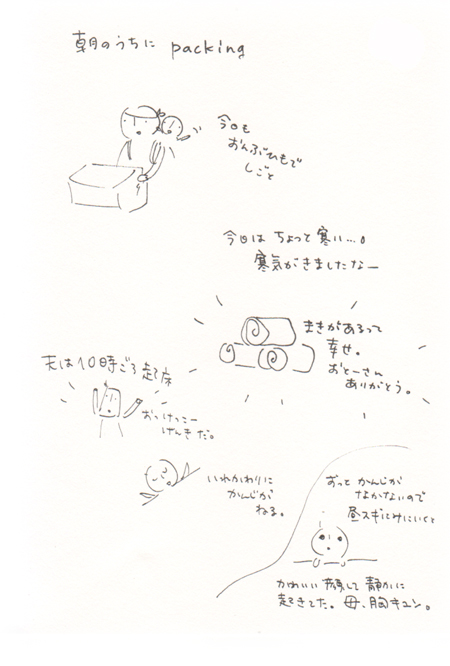 朝のうちに packing
今日も
おんぶひもで
しごと
今日は ちょっと寒い…。
寒気がきましたなー
まきがあるって
幸せ。
おとーさん
ありがとう。
夫は10時ごろ起床
おっけっこー
げんきだ。
いれかわりに
かんじが
ねる。
ずっと かんじが
なかないので
昼スギにみにいくと
かわいい顔して 静かに
起きてた。母、胸キュン。